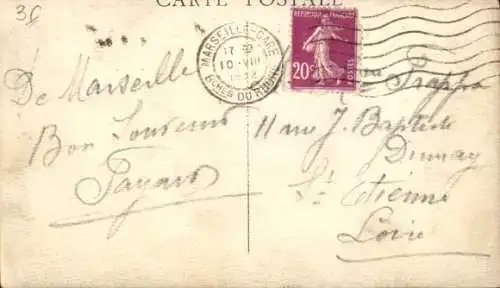 36
CARTE POSTALE
MARSEILLE-GARE
17 10 VIII
BCHES DU RHONE
REPUBLIQUE FRANCAISE
20c
POSTES
De Marseille
Bon Souvenir
Fayard
Frappa
11 rue J. Baptiste
Durnay
St Etienne
Loire